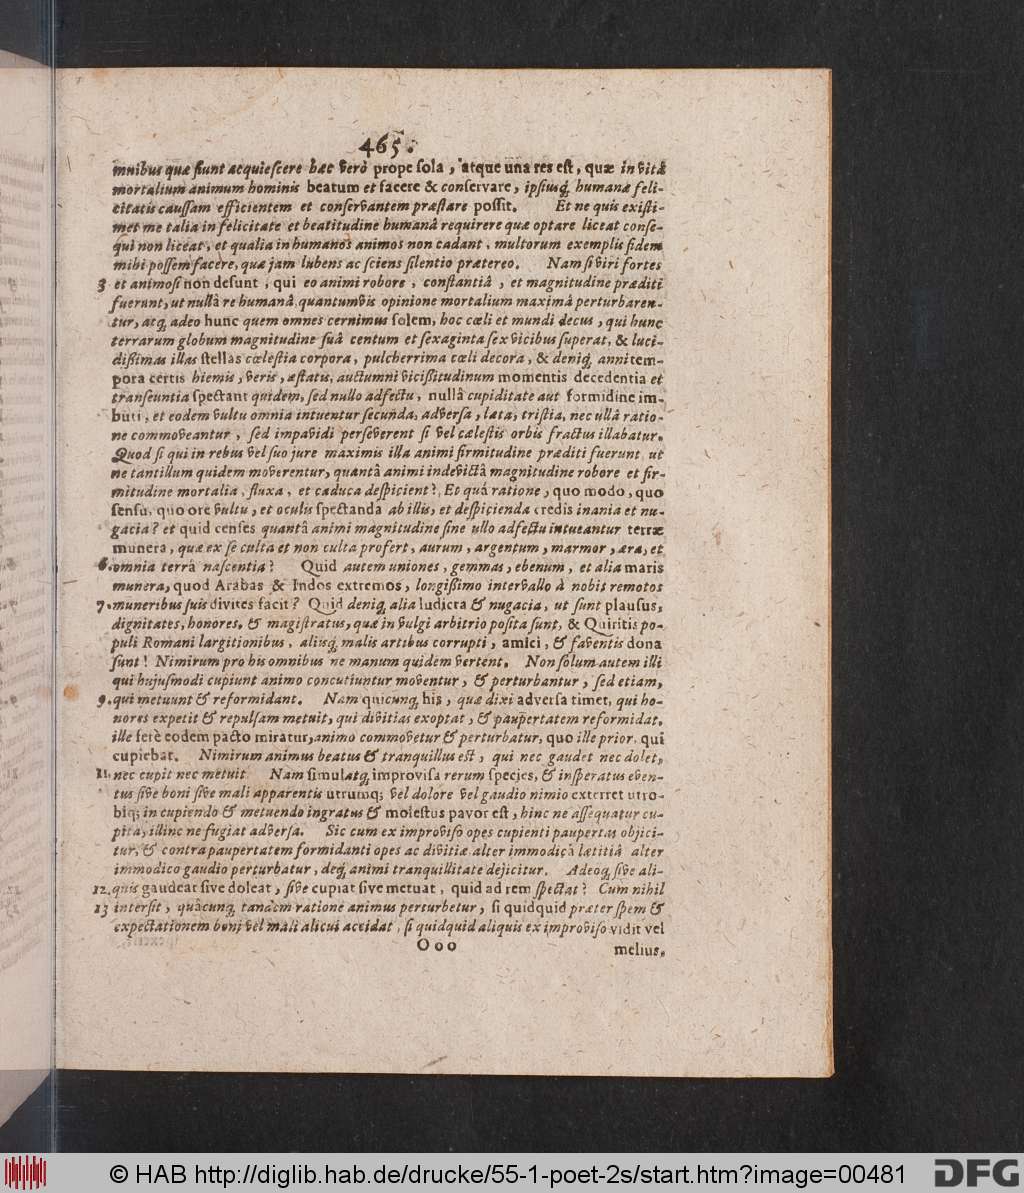 465.
mnibus quæ fiunt acquiescere hæc verò prope sola, atque una res est, quæ in vitâ
mortalium animum hominis beatum et facere & conservare, ipsiusq; humanæ feli-
citatis caussam efficientem et conservantem præstare possit. Et ne quis existi-
met me talia in felicitate et beatitudine humanâ requirere quæ optare liceat conse-
qui non liceat, et qualia in humanos animos non cadant, multorum exemplis fidem
mihi possem facere, quæ jam lubens ac sciens silentio prætereo. Nam si viri fortes
3 et animosi non desunt, qui eo animi robore, constantiâ, et magnitudine præditi
fuerunt, ut nullâ re humanâ quantumvis opinione mortalium maximâ perturbaren-
tur, atq; adeo hunc quem omnes cernimus solem, hoc cœli et mundi decus, qui hunc
terrarum globum magnitudine suâ centum et sexaginta sex vicibus superat, & luci-
dißimas illas stellas cœlestia corpora, pulcherrima cœli decora, & deniq; anni tem-
pora certis hiemis, veris, æstatis, auctumni vicißitudinum momentis decedentia et
transeuntia spectant quidem, sed nullo adfectu, nullâ cupiditate aut formidine im-
buti, et eodem vultu omnia intuentur secunda, adversa, læta, tristia, nec ullâ ratio-
ne commoveantur, sed impavidi perseverent si vel cælestis orbis fractus illabatur.
Quod si qui in rebus vel suo jure maximis illa animi firmitudine præditi fuerunt ut
ne tantillum quidem moverentur, quantâ animi indevictâ magnitudine robore et fir-
mitudine mortalia, fluxa, et caduca despicient? Et quâ ratione, quo modo, quo
sensu, quo ore vultu, et oculis spectanda ab illis, et despicienda credis inania et nu-
gacia? et quid censes quantâ animi magnitudine sine ullo adfectu intueantur terræ
munera, quæ ex se culta et non culta profert, aurum, argentum, marmor, æra, et
6. omnia terrâ nascentia? Quid autem uniones, gemmas, ebenum, et alia maris
munera, quod Arabas & Indos extremos, longißimo intervallo à nobis remotos
7. muneribus suis divites facit? Quid deniq; alia ludicra & nugacia, ut sunt plausus,
dignitates, honores, & magistratus, quæ in vulgi arbitrio posita sunt, & Quiritis po-
puli Romani largitionibus, aliisq; malis artibus corrupti, amici, & faventis dona
sunt! Nimirum pro his omnibus ne manum quidem vertent. Non solum autem illi
qui hujusmodi cupiunt animo concutiuntur moventur, & perturbantur, sed etiam,
9. qui metuunt & reformidant. Nam quicunq; his, quæ dixi adversa timet, qui ho-
nores expetit & repulsam metuit, qui divitias exoptat, & paupertatem reformidat,
ille ferè eodem pacto miratur, animo commovetur & perturbatur, quo ille prior, qui
cupiebat. Nimirum animus beatus & tranquillus est, qui nec gaudet nec dolet,
11. nec cupit nec metuit Nam simulatq; improvisa rerum species, & insperatus even-
tus sive boni sive mali apparentis utrumq; vel dolore vel gaudio nimio exterret utro-
biq; in cupiendo & metuendo ingratus & molestus pavor est, hinc ne assequatur cu-
pita, illinc ne fugiat adversa. Sic cum ex improviso opes cupienti paupertas objici-
tur, & contra paupertatem formidanti opes ac divitiæ alter immodicâ lætitiâ alter
immodico gaudio perturbatur, deq; animi tranquillitate dejicitur. Adeoq; sive ali-
12. quis gaudeat sive doleat, sive cupiat sive metuat, quid ad rem spectat? Cum nihil
13 intersit, quâcunq; tandem ratione animus perturbetur, si quidquid præter spem &
expectationem boni vel mali alicui accidat, si quidquid aliquis ex improviso vidit vel
Ooo melius,
© HAB http://diglib.hab.de/drucke/55-1-poet-2s/start.htm?image=00481
DFG